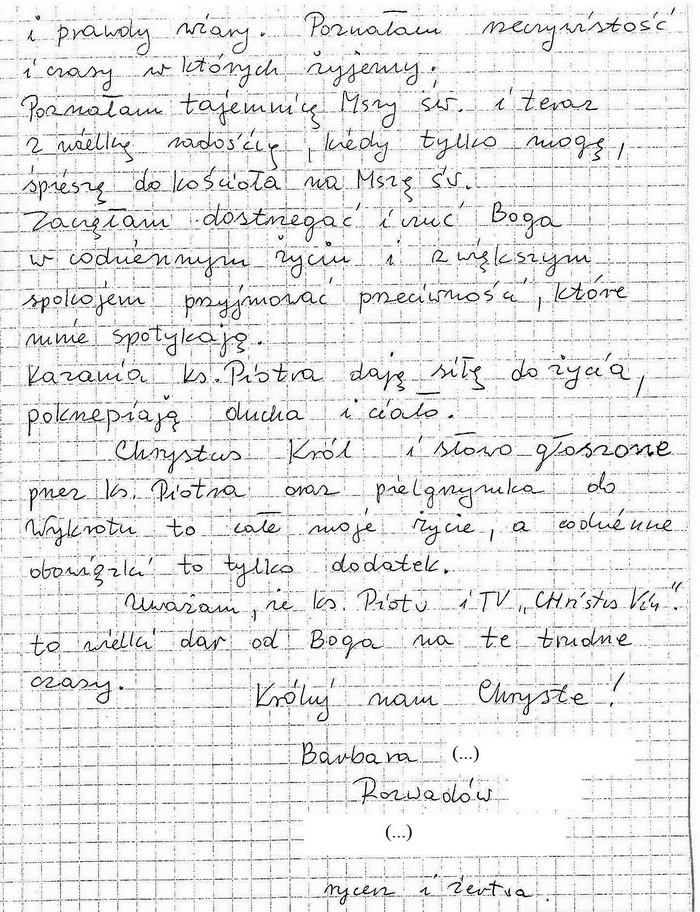 i prawdy wiary. Poznałam rzeczywistość
i czasy w których żyjemy.
Poznałam tajemnicę Mszy św. i teraz
z wielką radością, kiedy tylko mogę,
śpieszę do kościoła na Mszę św.
Zaczęłam dostrzegać i czuć Boga
w codziennym życiu i z większym
spokojem przyjmować przeciwności, które
mnie spotykają.
Kazania ks. Piotra dają siłę do życia,
pokrzepiają ducha i ciało.
Chrystus Król i słowo głoszone
przez ks. Piotra oraz pielgrzymka do
Wykrotu to całe moje życie, a codzienne
obowiązki to tylko dodatek.
Uważam, że ks. Piotr i TV „CHristus Vin".
to wielki dar od Boga na te trudne
czasy.
Króluj nam Chryste!
Barbara (...)
Rozwadów
(...)
rycerz i żertwa.